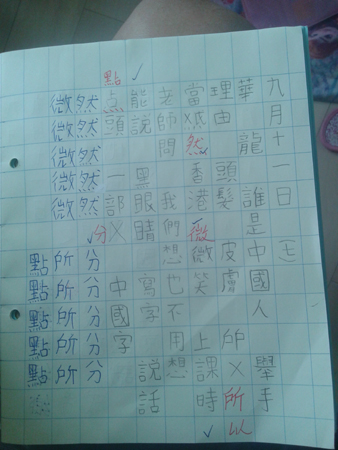 九月十一日 七
舉手
華龍 誰是中國人
理由 頭髮皮膚 所×
所以
當 然 香港 微笑 上課時
微
老師問 我們想也不用想
能說 黑眼睛 寫字 說話
點
点頭 一部×中國字
分
然然然然然
分分分分分
微微微微微
所所所所所
點點點點點